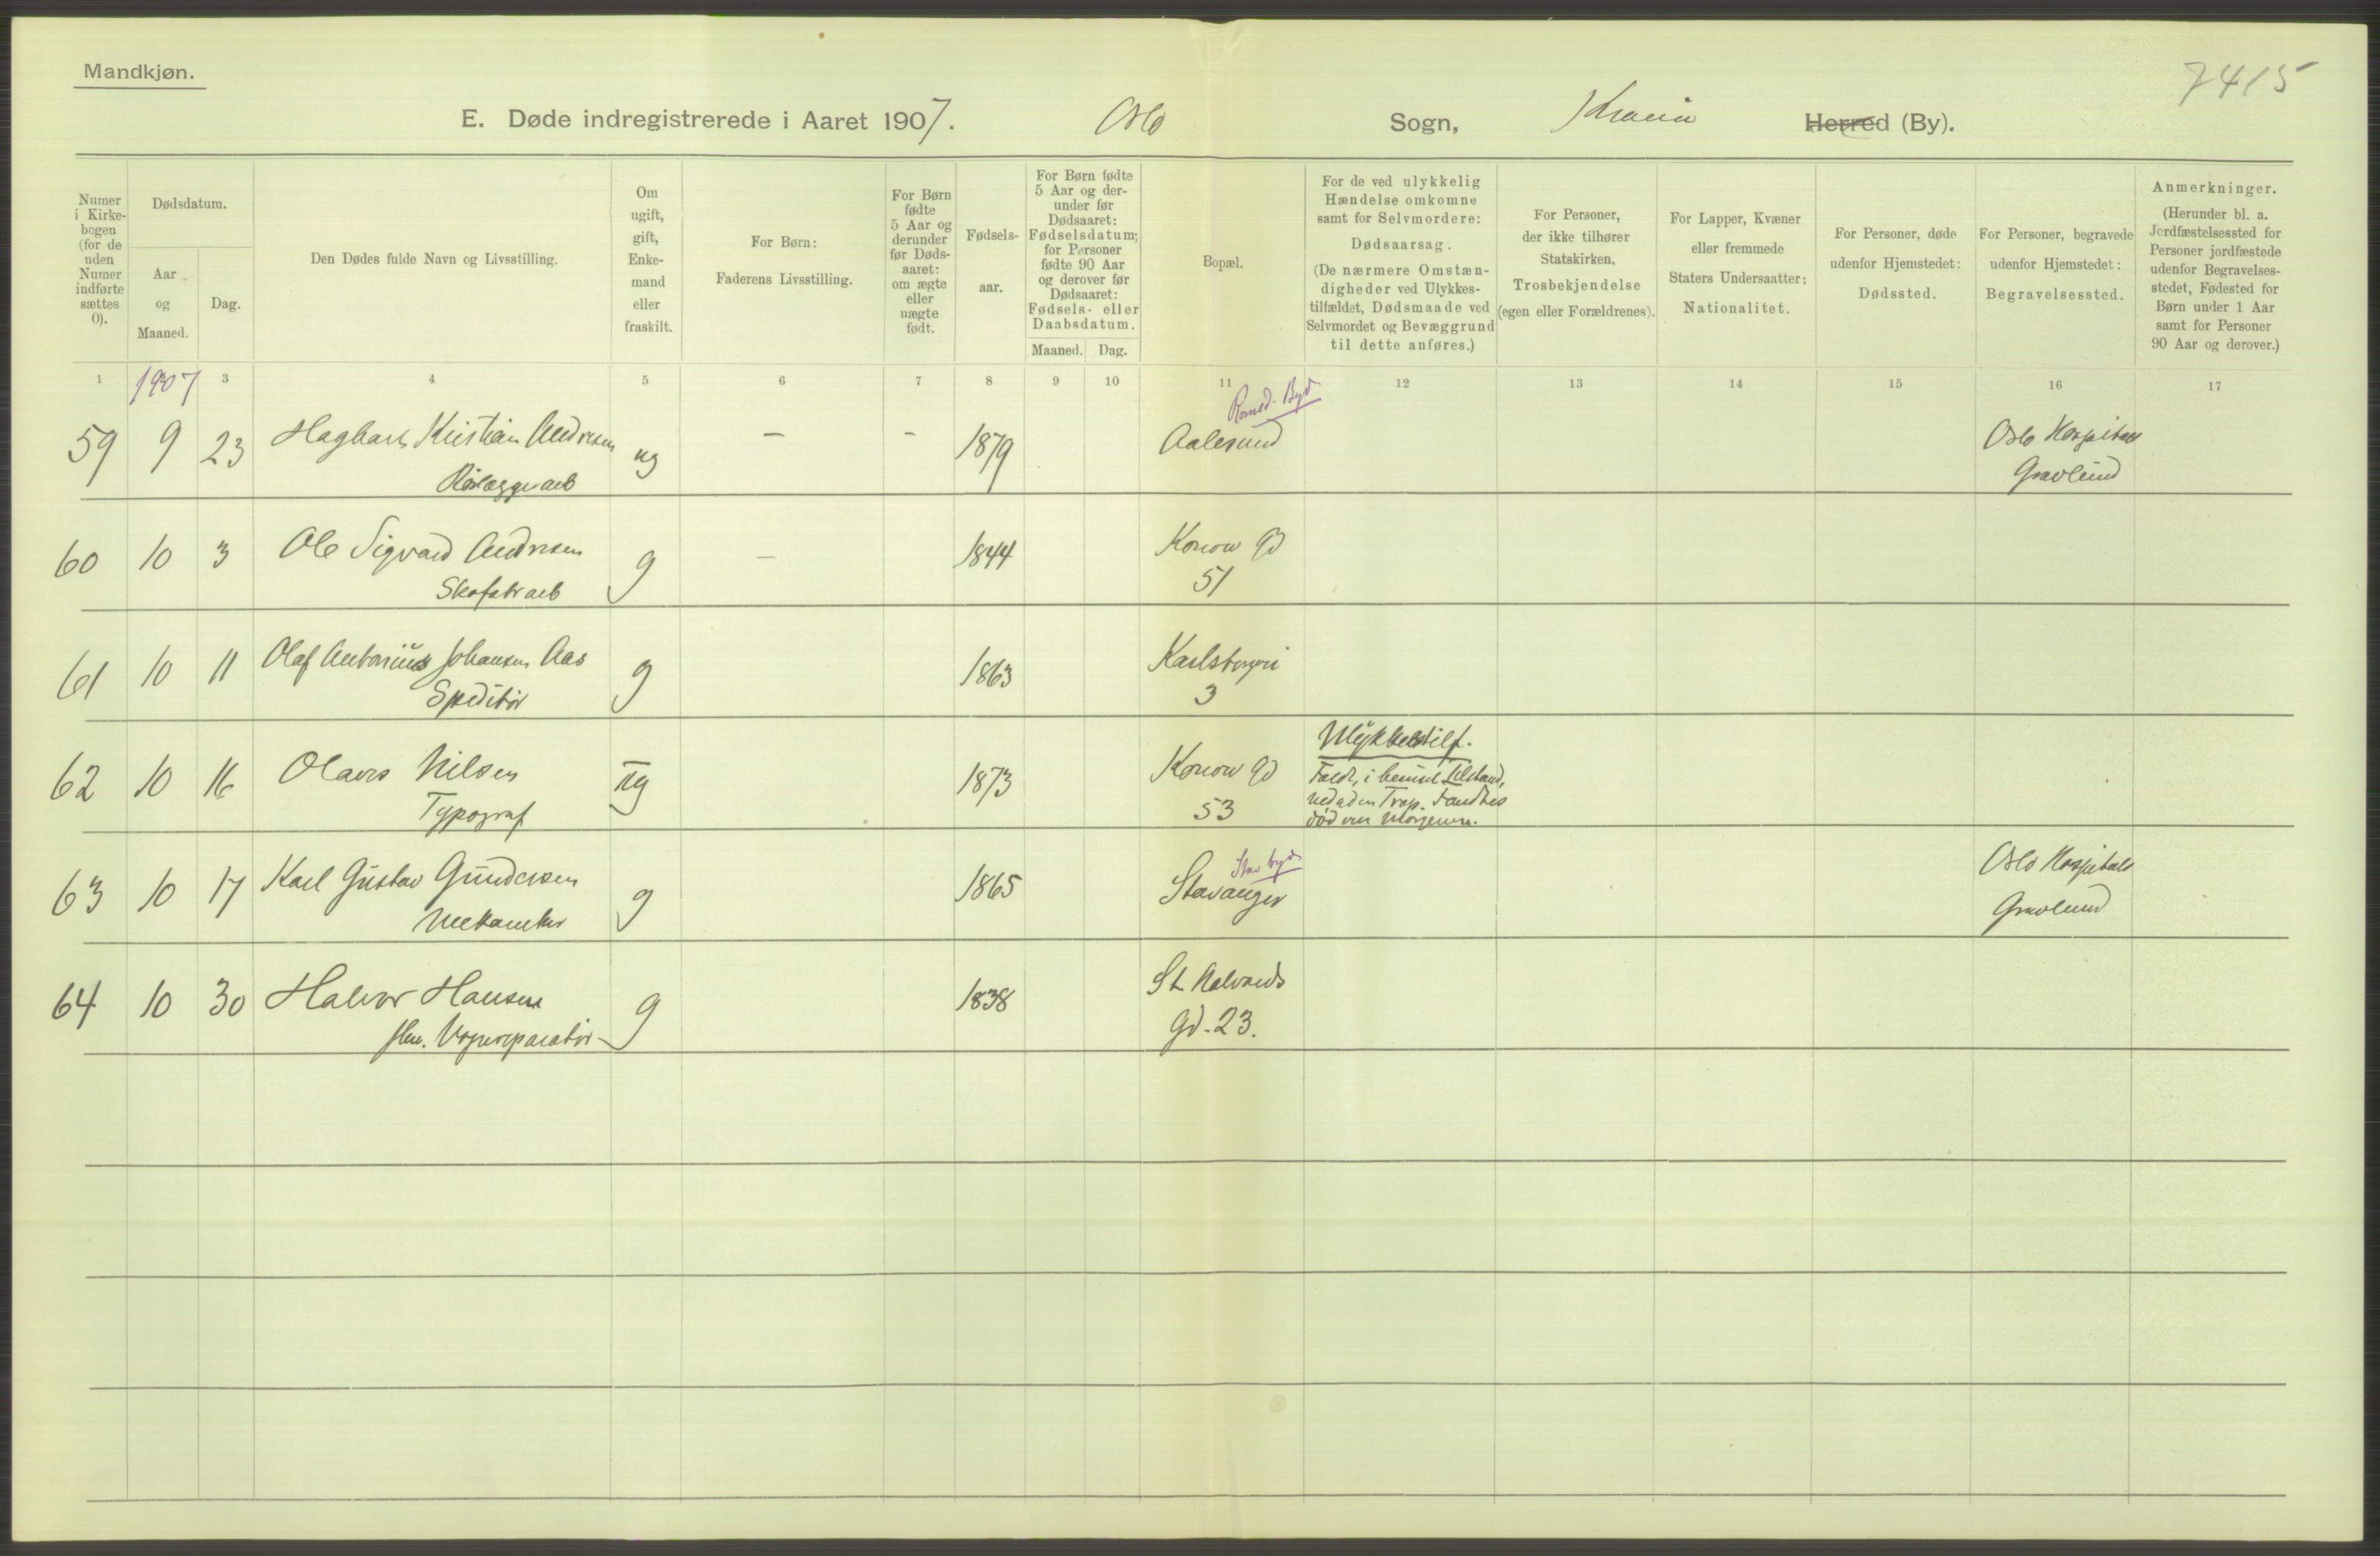 Mandkjøn.
7415
E. Døde indregistrerede i Aaret 1907. Oslo Sogn, Kra͞nia Herred (By).
Numer i Kirke-bogen (for de uden Numer indførte sættes 0).
Dødsdatum.
Aar og Maaned.
Dag.
Den Dødes fulde Navn og Livsstilling.
Om ugift, gift, Enke-mand eller fraskilt.
For Børn:
Faderens Livsstilling.
For Børn fødte 5 Aar og derunder før Døds-aaret: om ægte eller uægte født.
Fødsels-aar.
For Børn fødte 5 Aar og der-under før Dødsaaret: Fødselsdatum; for Personer fødte 90 Aar og derover før Dødsaaret: Fødsels- eller Daabsdatum.
Maaned. Dag.
Bopæl.
For de ved ulykkelig Hændelse omkomne samt for Selvmordere:
Dødsaarsag.
(De nærmere Omstæn-digheder ved Ulykkes-tilfældet, Dødsmaade ved Selvmordet og Bevæggrund til dette anføres.)
For Personer, der ikke tilhører Statskirken,
Trosbekjendelse
(egen eller Forældrenes).
For Lapper, Kvæner eller fremmede Staters Undersaatter:
Nationalitet.
For Personer, døde udenfor Hjemstedet:
Dødssted.
For Personer, begravede udenfor Hjemstedet:
Begravelsessted.
Anmerkninger.
(Herunder bl. a. Jordfæstelsessted for Personer jordfæstede udenfor Begravelses-stedet, Fødested for Børn under 1 Aar samt for Personer 90 Aar og derover.)
1 1907 3 4 5 6 7 8 9 10 11 12 13 14 15 16 17
Romsd. Byd
59 9 23 Hagbart Kristian Andresen ug - - 1879 Aalesund Oslo Hospitals
Rørlæggerarb Gravlund
60 10 3 Ole Sigvard Andresen g - 1844 Konow Gd
Skofabrarb 51
61 10 11 Olaf Antonius Johansen Aas g 1863 Karlsborgvei
Speditør 3
Ulykkestilf.
62 10 16 Olaves Nilsen ug 1873 Konow Gd Faldt, i beruset Tilstand,
Typograf 53 nedad en Trap. Fandtes
død om Morgenen.
Stav byd
63 10 17 Karl Gustav Gundersen g 1865 Stavanger Oslo Hospitals
Mekaniker Gravlund
64 10 30 Halvor Hansen g 1838 St. Halvards
Vognreparatør Gd. 23.